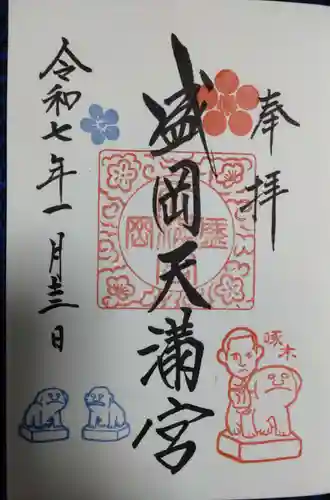 奉拝
盛岡天満宮
令和七年一月十三日
啄木